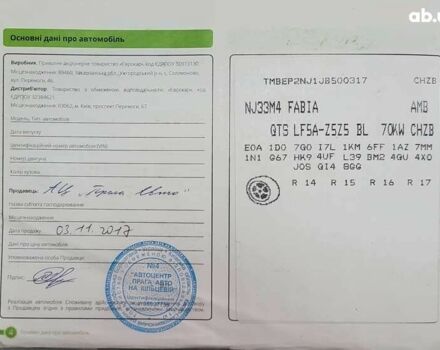 ab.ua
Основні дані про автомобіль
Виробник: Приватне акціонерне товариство «Єврокар» код ЄДРПОУ 30913130
Місцезнаходження: 89460, Закарпатська обл., Ужгородський р-н, с. Соломоново,
вул. Перемоги, 46.
Дистриб'ютор: Товариство з обмеженою відповідальністю «Єврокар», код
ЄДРПОУ 32384621
Місцезнаходження: 03062, м. Київ, проспект Перемоги, 67
Модель, тип автомобіля:
Дата випуску
Ідентифікаційний номер автомобіля (VIN)
Номер двигуна
Колір кузова
Продавець: АЦ „Прага Авто"
Назва суб'єкта господарювання
Місцезнаходження
Дата продажу 03.11.2017
Дані про ціну автомобіля
Уповноважена особа Продавця
Підпис:
№4
"АВТОЦЕНТР
ПРАГА АВТО
НА КІЛЬЦЕВІЙ"
Основні дані про автомобіль
TMBEP2NJ1JB500317 CHZB
NJ33M4 FABIA AMB
QTS LF5A-Z5Z5 BL 70KW CHZB
E0A 1D0 7G0 I7L 1KM 6FF 1AZ 7MM
1N1 Q67 HK9 4UF L39 BM2 4GU 4X0
J0S QI4 8GG
R 14 R 15 R 16 R 17